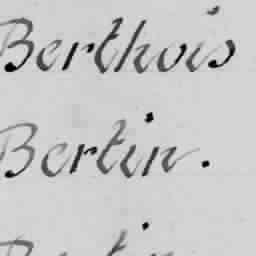 Berthois
Bertin.